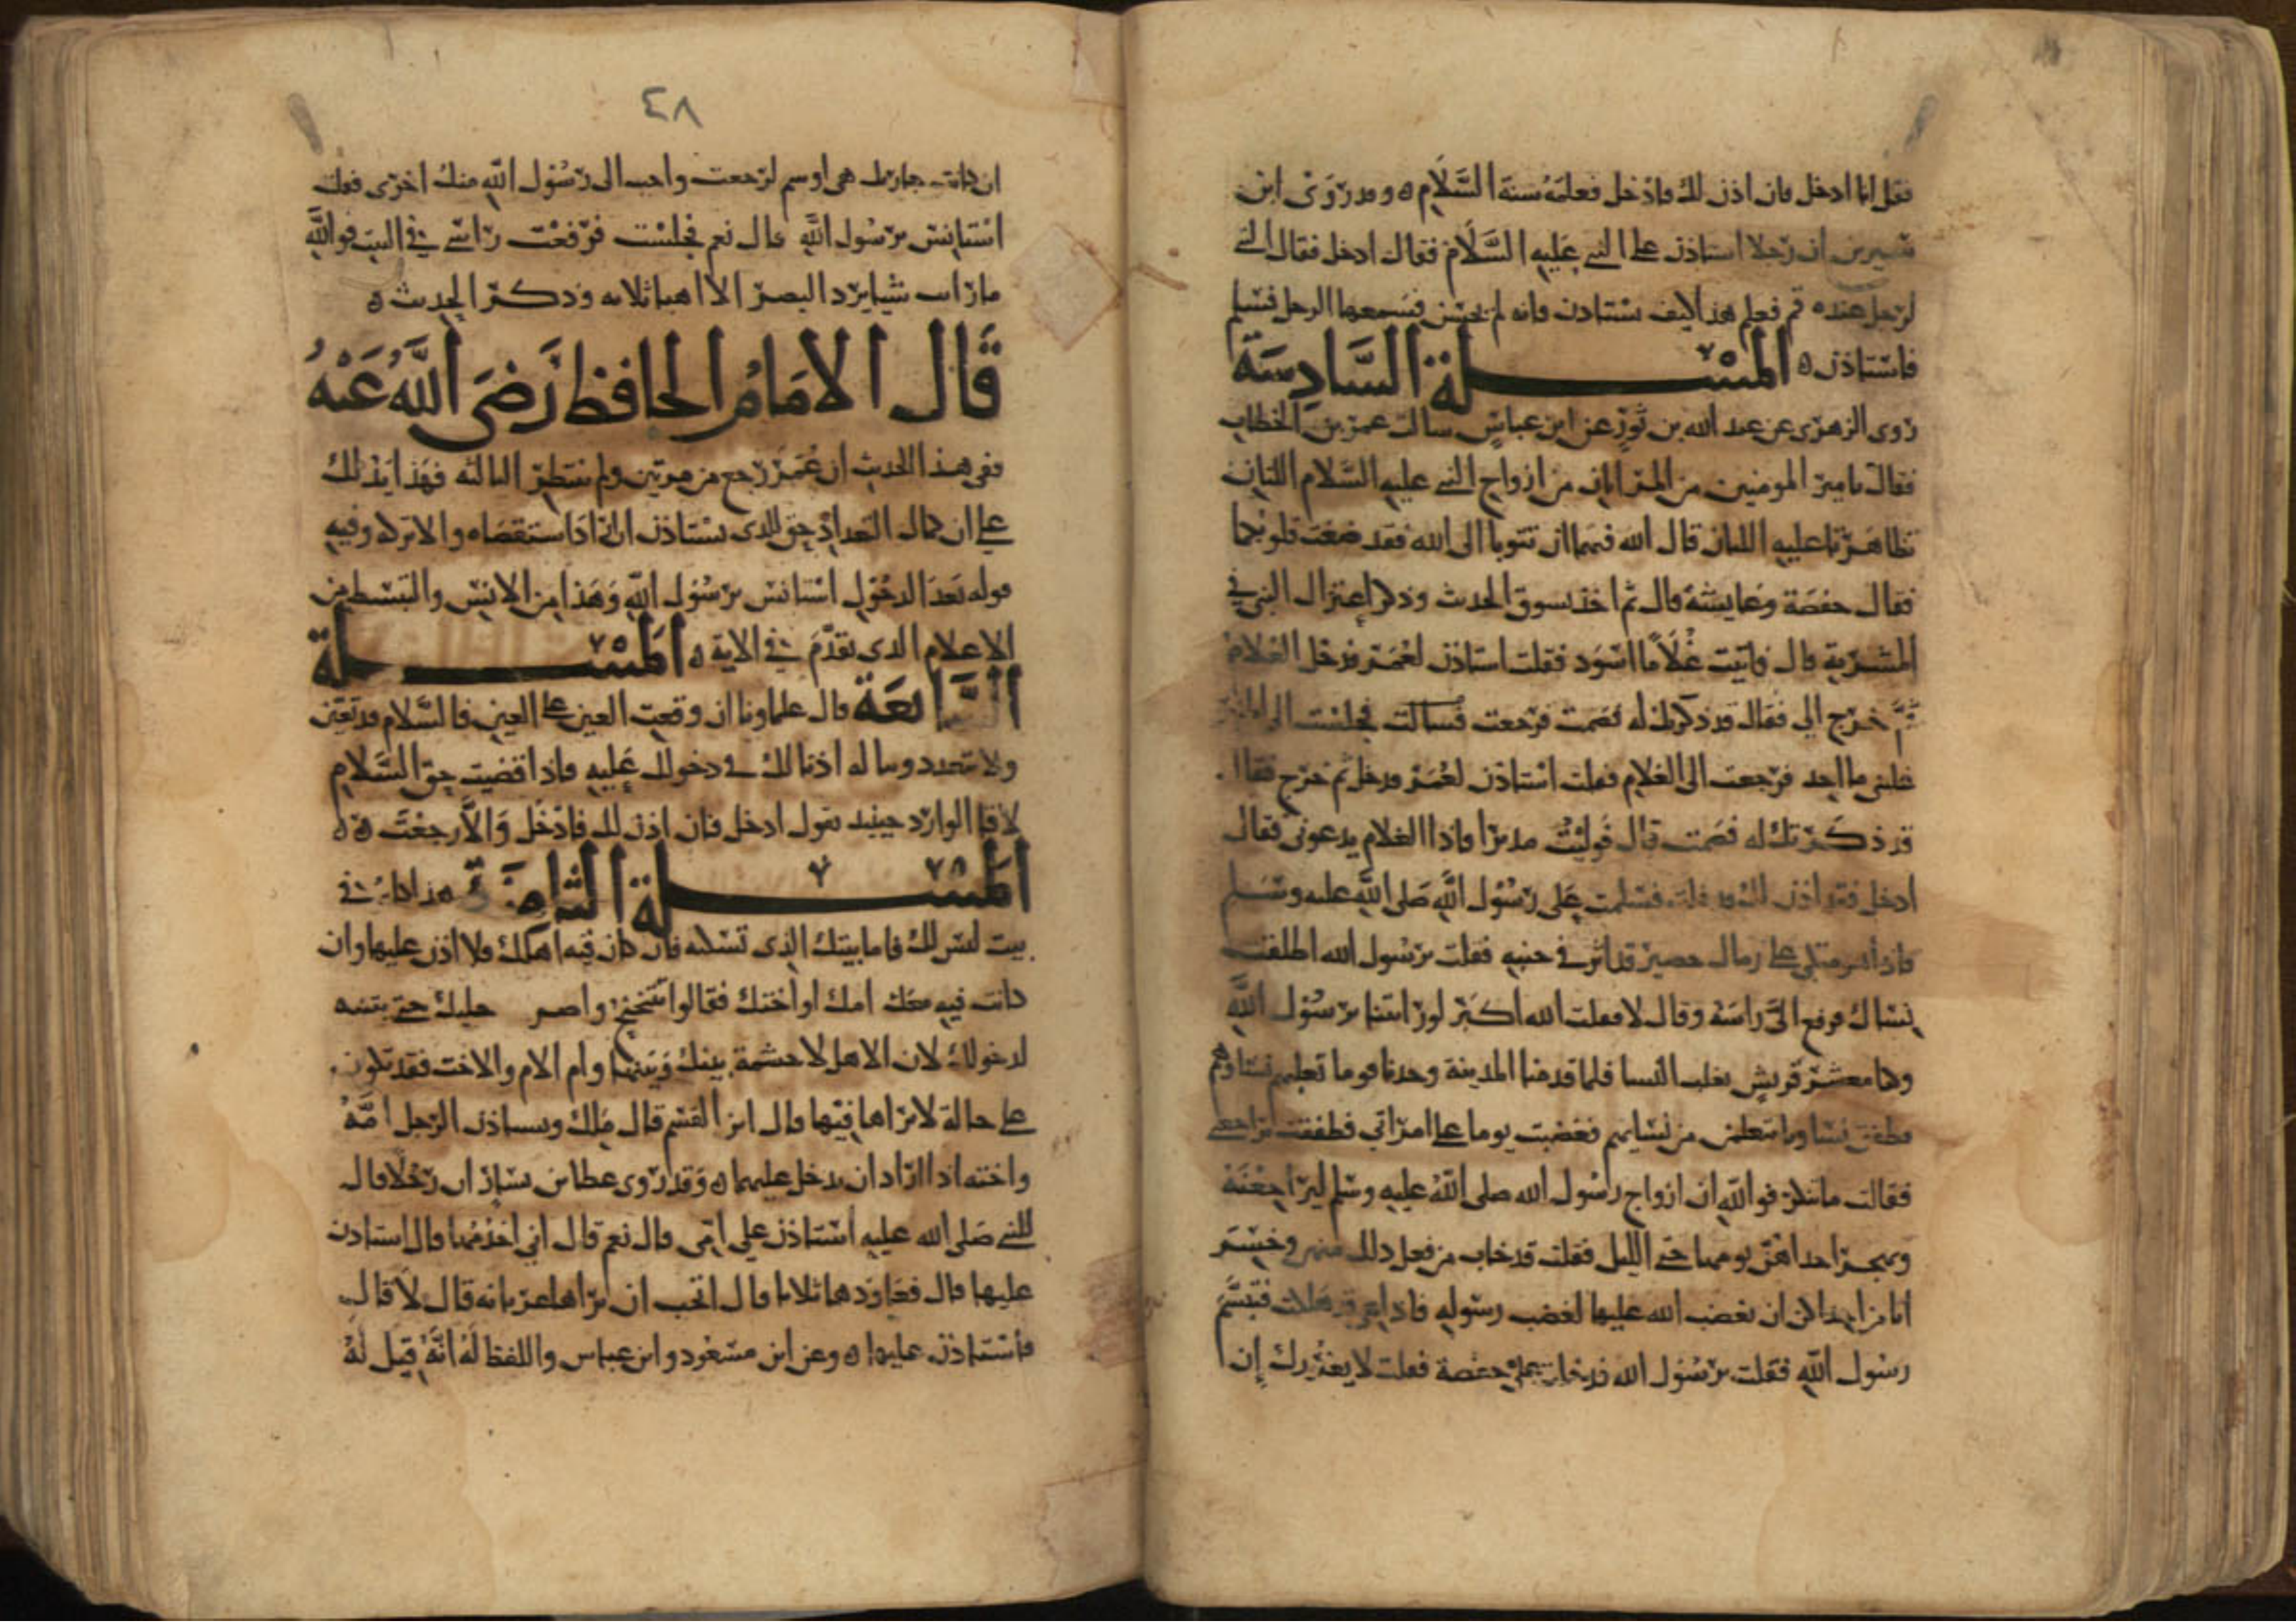 فقل اانا ادخل فان اذن لك فادخل فعلمه سنة السلام ه وقد روى ابن
سيرين ان رجلا استاذن على النبي عليه السلام فقال ادخل فقال النبي
لرجل عنده قم فعلم هذا كيف يستاذن فانه لم يحسن فسمعها الرجل فسلم
فاستاذن ه المسئلة السادسة
روى الزهري عن عبد الله بن ثور عن ابن عباس سالت عمر بن الخطاب
فقلت يامير المومنين من المراتان من ازواج النبي عليه السلام اللتان
تظاهرتا عليه اللتان قال الله فيهما ان تتوبا الى الله فقد صغت قلوبكما
فقال حفصة وعايشة قال ثم اخذ يسوق الحديث وذكر اعتزال النبي في
المشربة قال فاتيت غلاما اسود فقلت استاذن لعمر فدخل الغلام
ثم خرج الي فقال قد ذكرتك له فصمت فرجعت فجلست الى
غلبني ما اجد فرجعت الى الغلام فقلت استاذن لعمر فدخل ثم خرج فقال
قد ذكرتك له فصمت قال فوليت مدبرا فاذا الغلام يدعوني فقال
ادخل فقد اذن لك فدخلت فسلمت على رسول الله صلى الله عليه وسلم
فاذا هو متكي على رمال حصير قد اثر في جنبه فقلت يرسول الله اطلقت
نساك فرفع الي راسه وقال لا فقلت الله اكبر لو رايتنا يرسول الله
وكنا معشر قريش نغلب النسا فلما قدمنا المدينة وجدنا قوما تغلبهم نساوهم
فطفق نساونا يتعلمن من نسايهم فغضبت يوما على امراتي فطفقت تراجعني
فقالت ما تنكر فوالله ان ازواج رسول الله صلى الله عليه وسلم ليراجعنه
وتهجره احداهن يومها حتى الليل فقلت قد خاب من فعل ذلك منهن وخسر
افتامن احداكن ان يغضب الله عليها لغضب رسوله فاذا هي قد هلكت فتبسم
رسول الله فقلت يرسول الله قد دخلت على حفصة فقلت لا يغررك ان
٤٨
ان كانت جارتك هي اوسم لرجعت واحب الى رسول الله منك اخرى فقلت
استانس يرسول الله قال نعم فجلست فرفعت راسي في البيت فوالله
ما رايت شيا يرد البصر الا اهبا ثلاثة وذكر الحديث ه
قال الامام الحافظ رضي الله عنه
ففي هذا الحديث ان عمر رجع من مرتين ولم ينتظر الثالثة فهذا يدلك
على ان كمال التعداد حق الذي يستاذن ان اراد استقصاه والا تركه وفيه
قوله بعد الدخول استانس يرسول الله وهذا من الانس والتبسط من
الاعلام الذي تقدم في الاية ه المسئلة
السابعة قال علماونا ان وقعت العين على العين فالسلام قد تعين
ولا تتعدد رويته له اذنا لك في دخولك عليه فاذا قضيت حق السلام
لانك الوارد حينيذ تقول ادخل فان اذن لك فادخل والا رجعت ه
المسئلة الثامنة هذا كله في
بيت ليس لك فاما بيتك الذي تسكنه فان كان فيه اهلك فلا اذن عليها وان
كانت فيه معك امك او اختك فقالوا تنحنح واضرب برجليك حتى ينتبه
لدخولك لان الاهل لا حشمة بينك وبينها وام الام والاخت فقد تكون
على حالة لا تراها فيها قال ابن القسم قال ملك ويستاذن الرجل امه
واخته اذا اراد ان يدخل عليهما ه وقد روى عطا بن يسار ان رجلا قال
للنبي صلى الله عليه استاذن على امي قال نعم قال اني اخدمها قال استاذن
عليها قال فعاوده ثلاثا قال اتحب ان تراها عريانة قال لا قال
فاستاذن عليها ه وعن ابن مسعود وابن عباس واللفظ له انه قيل له